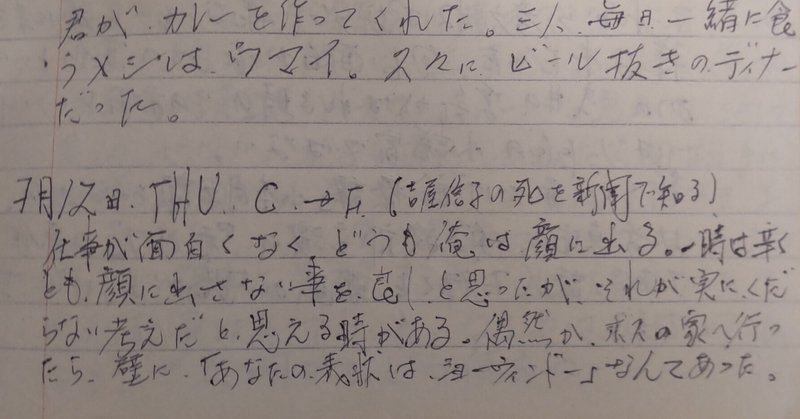 君が、カレーを作ってくれた。三人、毎日、一緒に食
うメシは、ウマイ。久々に、ビール抜きのディナー
だった。
7月12日、THU. C → F. (吉屋信子の死を新聞で知る)
仕事が面白くなく、どうも俺は顔に出る。一時は辛く
とも、顔に出さない事を、良し、と思ったが、それが実に、くだ
らない考えだ、と、思える時がある。偶然か、ボスの家へ行っ
たら、壁に、「あなたの、表状は、ショーウィンドー」なんてあった。